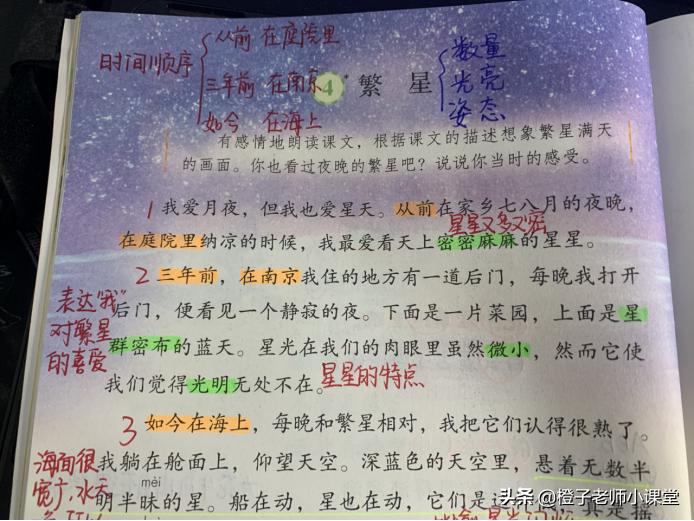 时间顺序
从前 在庭院里
三年前 在南京
如今 在海上
4 繁星
数量
光亮
姿态
有感情地朗读课文，根据课文的描述想象繁星满天
的画面。你也看过夜晚的繁星吧？说说你当时的感受。
1 我爱月夜，但我也爱星天。从前在家乡七八月的夜晚，
星星又多又密
在庭院里纳凉的时候，我最爱看天上密密麻麻的星星。
2 三年前，在南京我住的地方有一道后门，每晚我打开
表达“我”
对繁星
的喜爱
后门，便看见一个静寂的夜。下面是一片菜园，上面是星
群密布的蓝天。星光在我们的肉眼里虽然微小，然而它使
我们觉得光明无处不在。
星星的特点
3 如今在海上，每晚和繁星相对，我把它们认得很熟了。
海面很
宽广，水天
我躺在舱面上，仰望天空。深蓝色的天空里，悬着无数半
mèi
明半昧的星。船在动，星也在动，它们是这
头条 @橙子老师小课堂